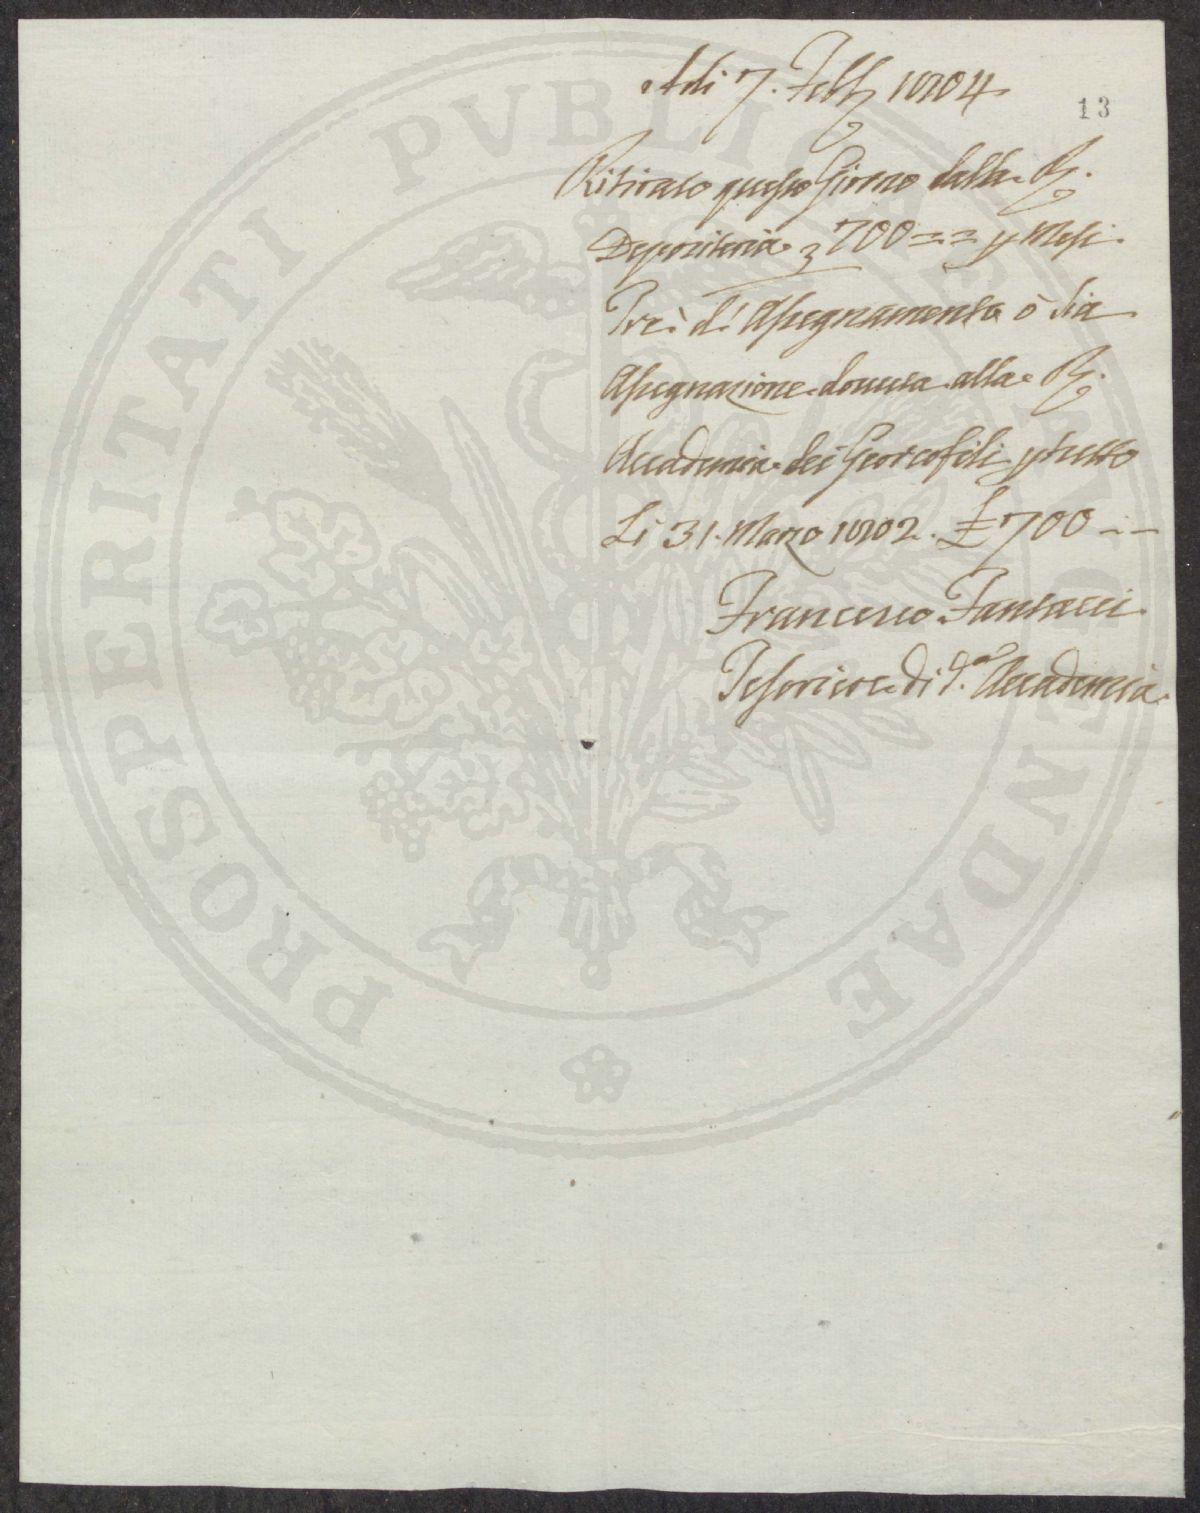 Adi 7. Febb. 1804
13
Ritirato questo Giorno dalla R.
Depositeria 700 == p Mesi
Trè d'Assegnamento ò sia
Assegnazione dovuta alla R.
Accademia dei Georcofili p tutto
Li 31. Marzo 1802. £ 700 --
Francesco Fantacci
Tesoriere di d.a Accademia
PROSPERITATI PVBLICAE AVGENDAE